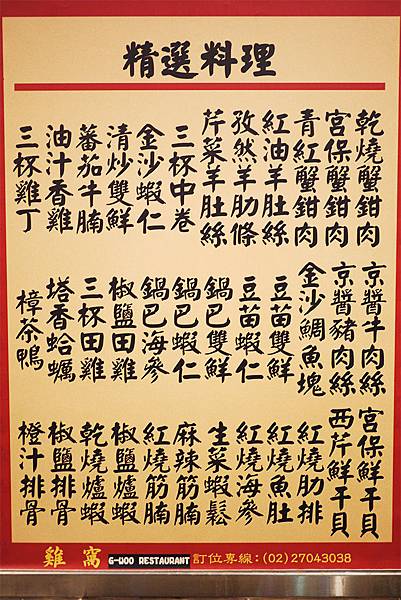 精選料理
乾燒蟹鉗肉
宮保蟹鉗肉
青紅蟹鉗肉
紅油羊肚絲
孜然羊肋條
芹菜羊肚絲
三杯中卷
金沙蝦仁
清炒雙鮮
蕃茄牛腩
油汁香雞
三杯雞丁
京醬牛肉絲
京醬豬肉絲
金沙鯛魚塊
豆苗雙鮮
豆苗蝦仁
鍋巴雙鮮
鍋巴蝦仁
鍋巴海參
椒鹽田雞
三杯田雞
塔香蛤蠣
樟茶鴨
宮保鮮干貝
西芹鮮干貝
紅燒肋排
紅燒魚肚
紅燒海參
生菜蝦鬆
麻辣筋腩
紅燒筋腩
椒鹽爐蝦
乾燒爐蝦
椒鹽排骨
橙汁排骨
雞窩 G-WOO RESTAURANT 訂位專線:(02)27043038